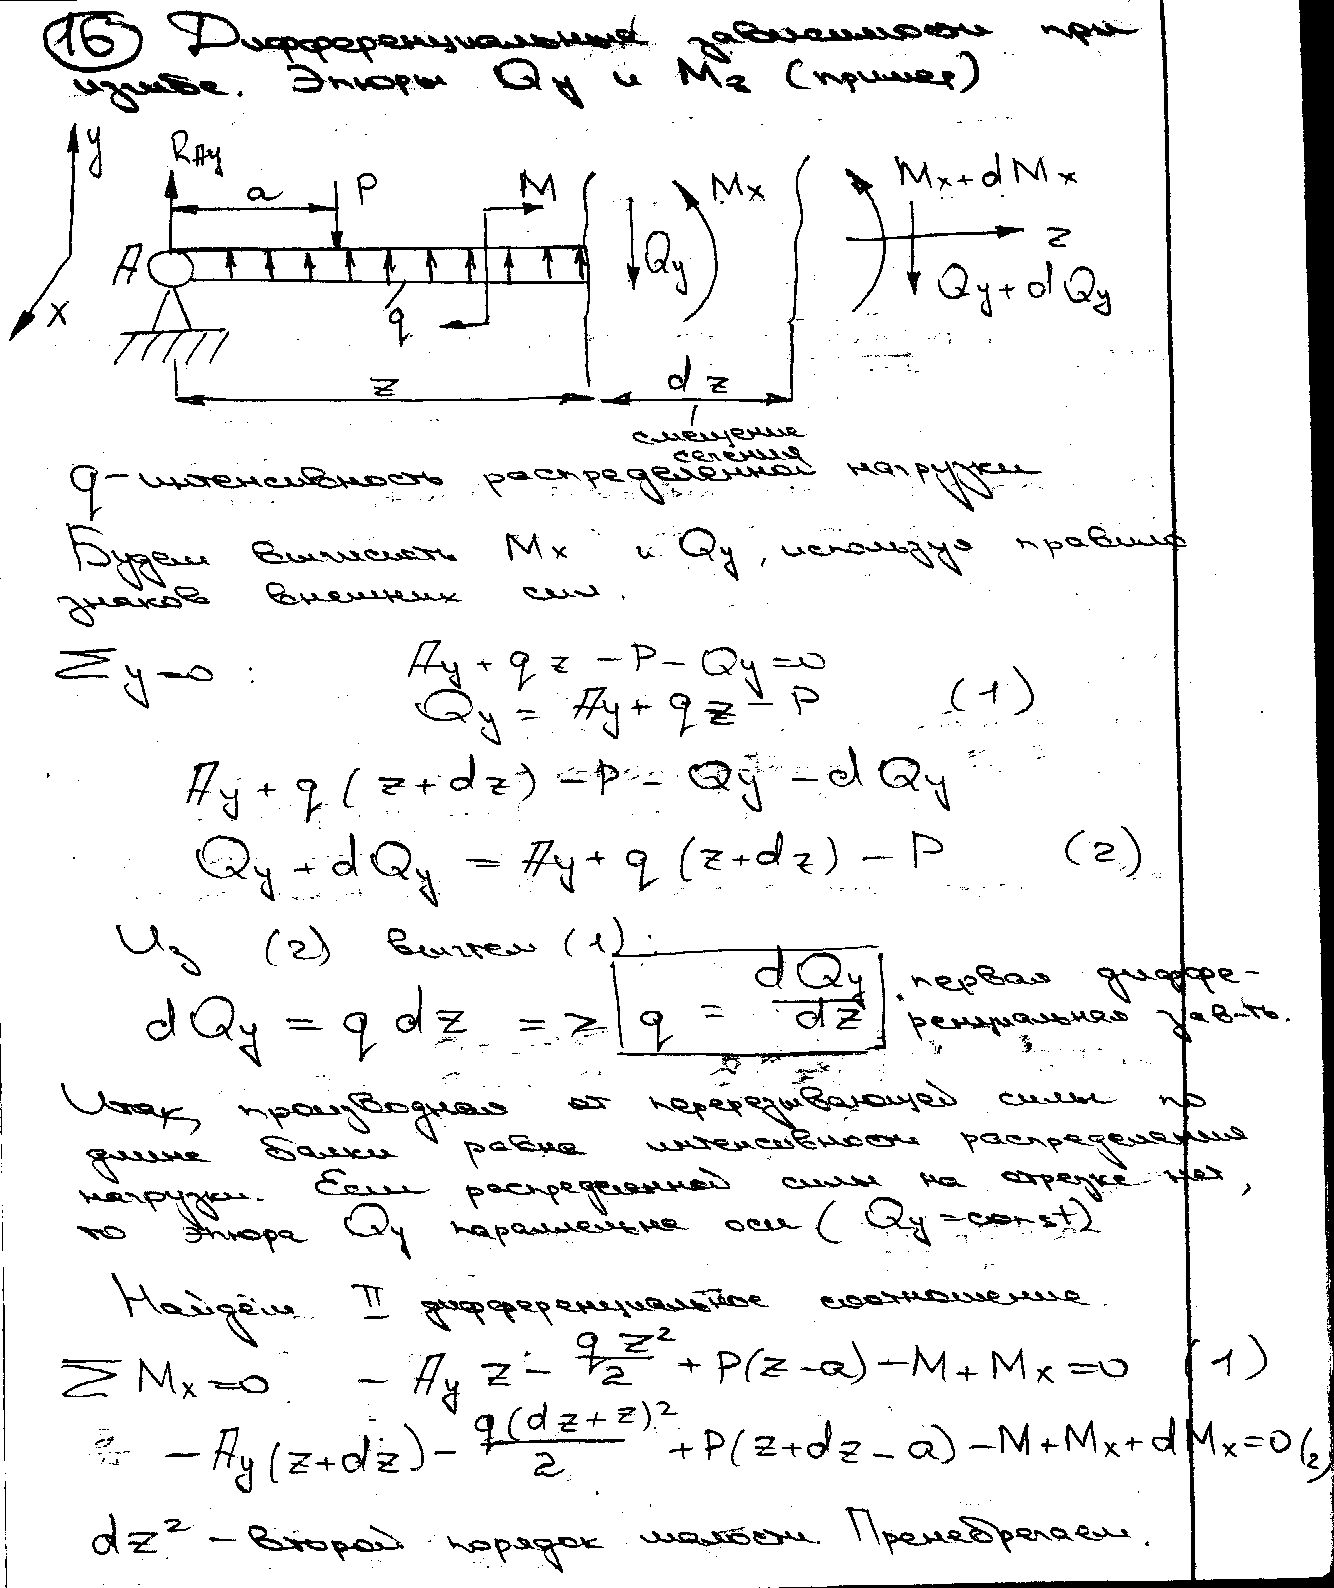 16 Дифференциальные зависимости при
изгибе. Эпюры Qy и Mz (пример)
y
RAy
a
P
M
Mx
Mx+dMx
z
A
Qy
Qy+dQy
x
q
z
dz
смещение
сечения
q - интенсивность распределенной нагрузки
Будем вычислять Mx и Qy, используя правило
знаков внешних сил.
Σy=0 : Ay + qz - P - Qy = 0
Qy = Ay + qz - P (1)
Ay + q(z+dz) - P - Qy - dQy
Qy + dQy = Ay + q(z+dz) - P (2)
Из (2) вычтем (1):
dQy = q dz => q = dQy/dz . первая диффе-
ренциальная зав-ть.
Итак, производная от перерезывающей силы по
длине балки равна интенсивности распределения
нагрузки. Если распределенной силы на отрезке нет,
то эпюра Qy параллельна оси (Qy=const)
Найдём II дифференциальное соотношение.
ΣMx=0 - Ay z - qz²/2 + P(z-a) - M + Mx = 0 (1)
- Ay(z+dz) - q(dz+z)²/2 + P(z+dz-a) - M + Mx + dMx = 0 (2)
dz² - второй порядок малости. Пренебрегаем.